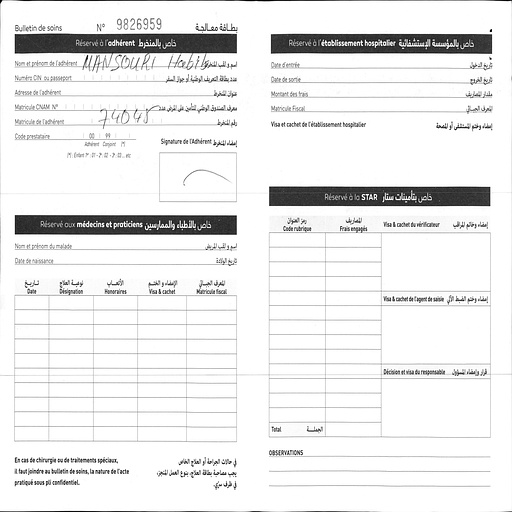 Bulletin de soins N° 9826959 بطاقة معالجة
Réservé à l'adhérent خاص بالمنخرط
Nom et prénom de l'adhérent MANSOURI Habib اسم و لقب المنخرط
Numéro CIN ou passeport عدد بطاقة التعريف الوطنية أو جواز السفر
Adresse de l'adhérent عنوان المنخرط
Matricule CNAM N° معرف الصندوق الوطني للتأمين على المرض عدد
Matricule de l'adhérent 74045 رقم المنخرط
Code prestataire 00 99 (*)
Adhérent Conjoint (*)
(*) : Enfant 1er : 01 - 2e : 02 - 3e : 03 ... etc
Signature de l'Adhérent إمضاء المنخرط
Réservé aux médecins et praticiens خاص بالأطباء والممارسين
Nom et prénom du malade اسم و لقب المريض
Date de naissance تاريخ الولادة
تاريخ توصية العلاج الأتعاب الإمضاء و الختم المعرف الجبائي
Date Désignation Honoraires Visa & cachet Matricule fiscal
En cas de chirurgie ou de traitements spéciaux,
il faut joindre au bulletin de soins, la nature de l'acte
pratiqué sous pli confidentiel.
في حالات الجراحة أو العلاج الخاص
يجب مصاحبة بطاقة العلاج، بنوع العمل المنجز،
في ظرف سري.
Réservé à l'établissement hospitalier خاص بالمؤسسة الإستشفائية
Date d'entrée تاريخ الدخول
Date de sortie تاريخ الخروج
Montant des frais مقدار المصاريف
Matricule Fiscal المعرف الجبائي
Visa et cachet de l'établissement hospitalier إمضاء وختم المستشفى أو المصحة
Réservé à la STAR خاص بتأمينات ستار
رمز العنوان المصاريف
Code rubrique Frais engagés
Visa & cachet du vérificateur إمضاء وخاتم المراقب
Visa & cachet de l'agent de saisie إمضاء وختم الضبط الآلي
Décision et visa du responsable قرار وإمضاء المسؤول
Total الجملة
OBSERVATIONS